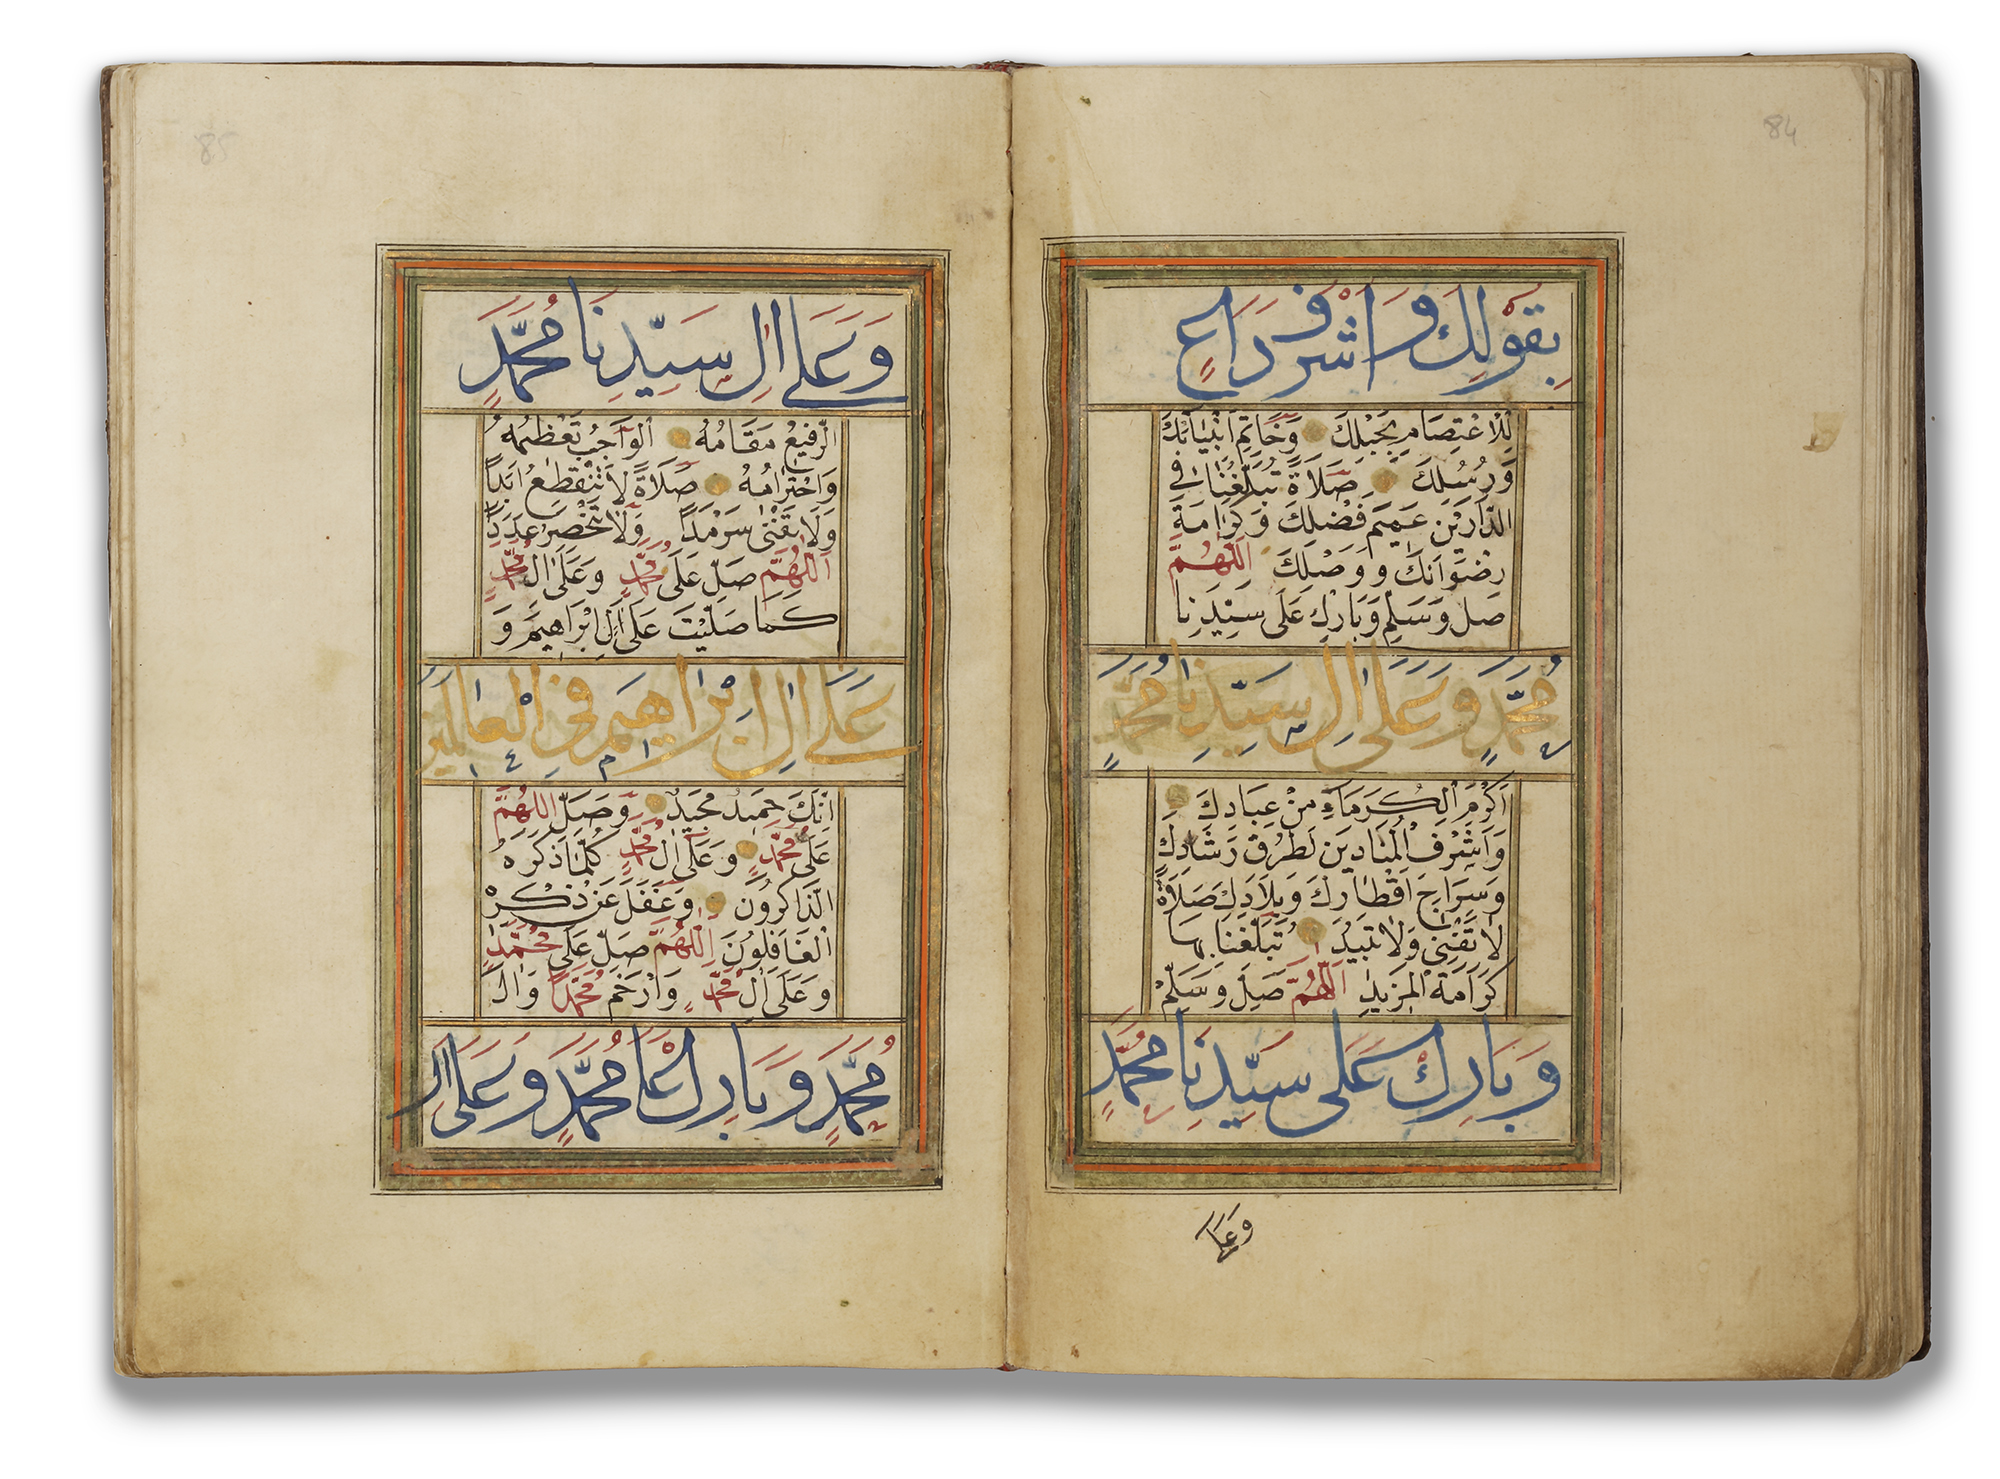 84
بِقَوْلِكَ وَاَشْرَفِ دَاعٍ
لِلْاِعْتِصَامِ بِحَبْلِكَ وَخَاتِمِ اَنْبِيَائِكَ
وَرُسُلِكَ صَلَاةً تُبَلِّغُنَا فِى
الدَّارَيْنِ عَمِيمَ فَضْلِكَ وَكَرَامَةَ
رِضْوَانِكَ وَوَصْلِكَ اَللّٰهُمَّ
صَلِّ وَسَلِّمْ وَبَارِكْ عَلَى سَيِّدِنَا
مُحَمَّدٍ وَعَلَى اٰلِ سَيِّدِنَا مُحَمَّدٍ
اَكْرَمِ الْكُرَمَاءِ مِنْ عِبَادِكَ
وَاَشْرَفِ الْمُنَادِينَ لِطُرُقِ رَشَادِكَ
وَسِرَاجِ اَقْطَارِكَ وَبِلَادِكَ صَلَاةً
لَا تَفْنَى وَلَا تَبِيدُ تُبَلِّغُنَا بِهَا
كَرَامَةَ الْمَزِيدِ اَللّٰهُمَّ صَلِّ وَسَلِّمْ
وَبَارِكْ عَلَى سَيِّدِنَا مُحَمَّدٍ
وَعَلَى
85
وَعَلَى اٰلِ سَيِّدِنَا مُحَمَّدٍ
الرَّفِيعِ مَقَامُهُ الْوَاجِبِ تَعْظِيمُهُ
وَاحْتِرَامُهُ صَلَاةً لَا تَنْقَطِعُ اَبَدًا
وَلَا تَفْنَى سَرْمَدًا وَلَا تَنْحَصِرُ عَدَدًا
اَللّٰهُمَّ صَلِّ عَلَى مُحَمَّدٍ وَعَلَى اٰلِ مُحَمَّدٍ
كَمَا صَلَّيْتَ عَلَى اٰلِ اِبْرَاهِيمَ وَ
عَلَى اٰلِ اِبْرَاهِيمَ فِى الْعَالَمِينَ
اِنَّكَ حَمِيدٌ مَجِيدٌ وَصَلِّ اللّٰهُمَّ
عَلَى مُحَمَّدٍ وَعَلَى اٰلِ مُحَمَّدٍ كُلَّمَا ذَكَرَهُ
الذَّاكِرُونَ وَغَفَلَ عَنْ ذِكْرِهِ
الْغَافِلُونَ اَللّٰهُمَّ صَلِّ عَلَى مُحَمَّدٍ
وَعَلَى اٰلِ مُحَمَّدٍ وَارْحَمْ مُحَمَّدًا وَاٰلَ
مُحَمَّدٍ وَبَارِكْ عَلَى مُحَمَّدٍ وَعَلَى اٰلِ